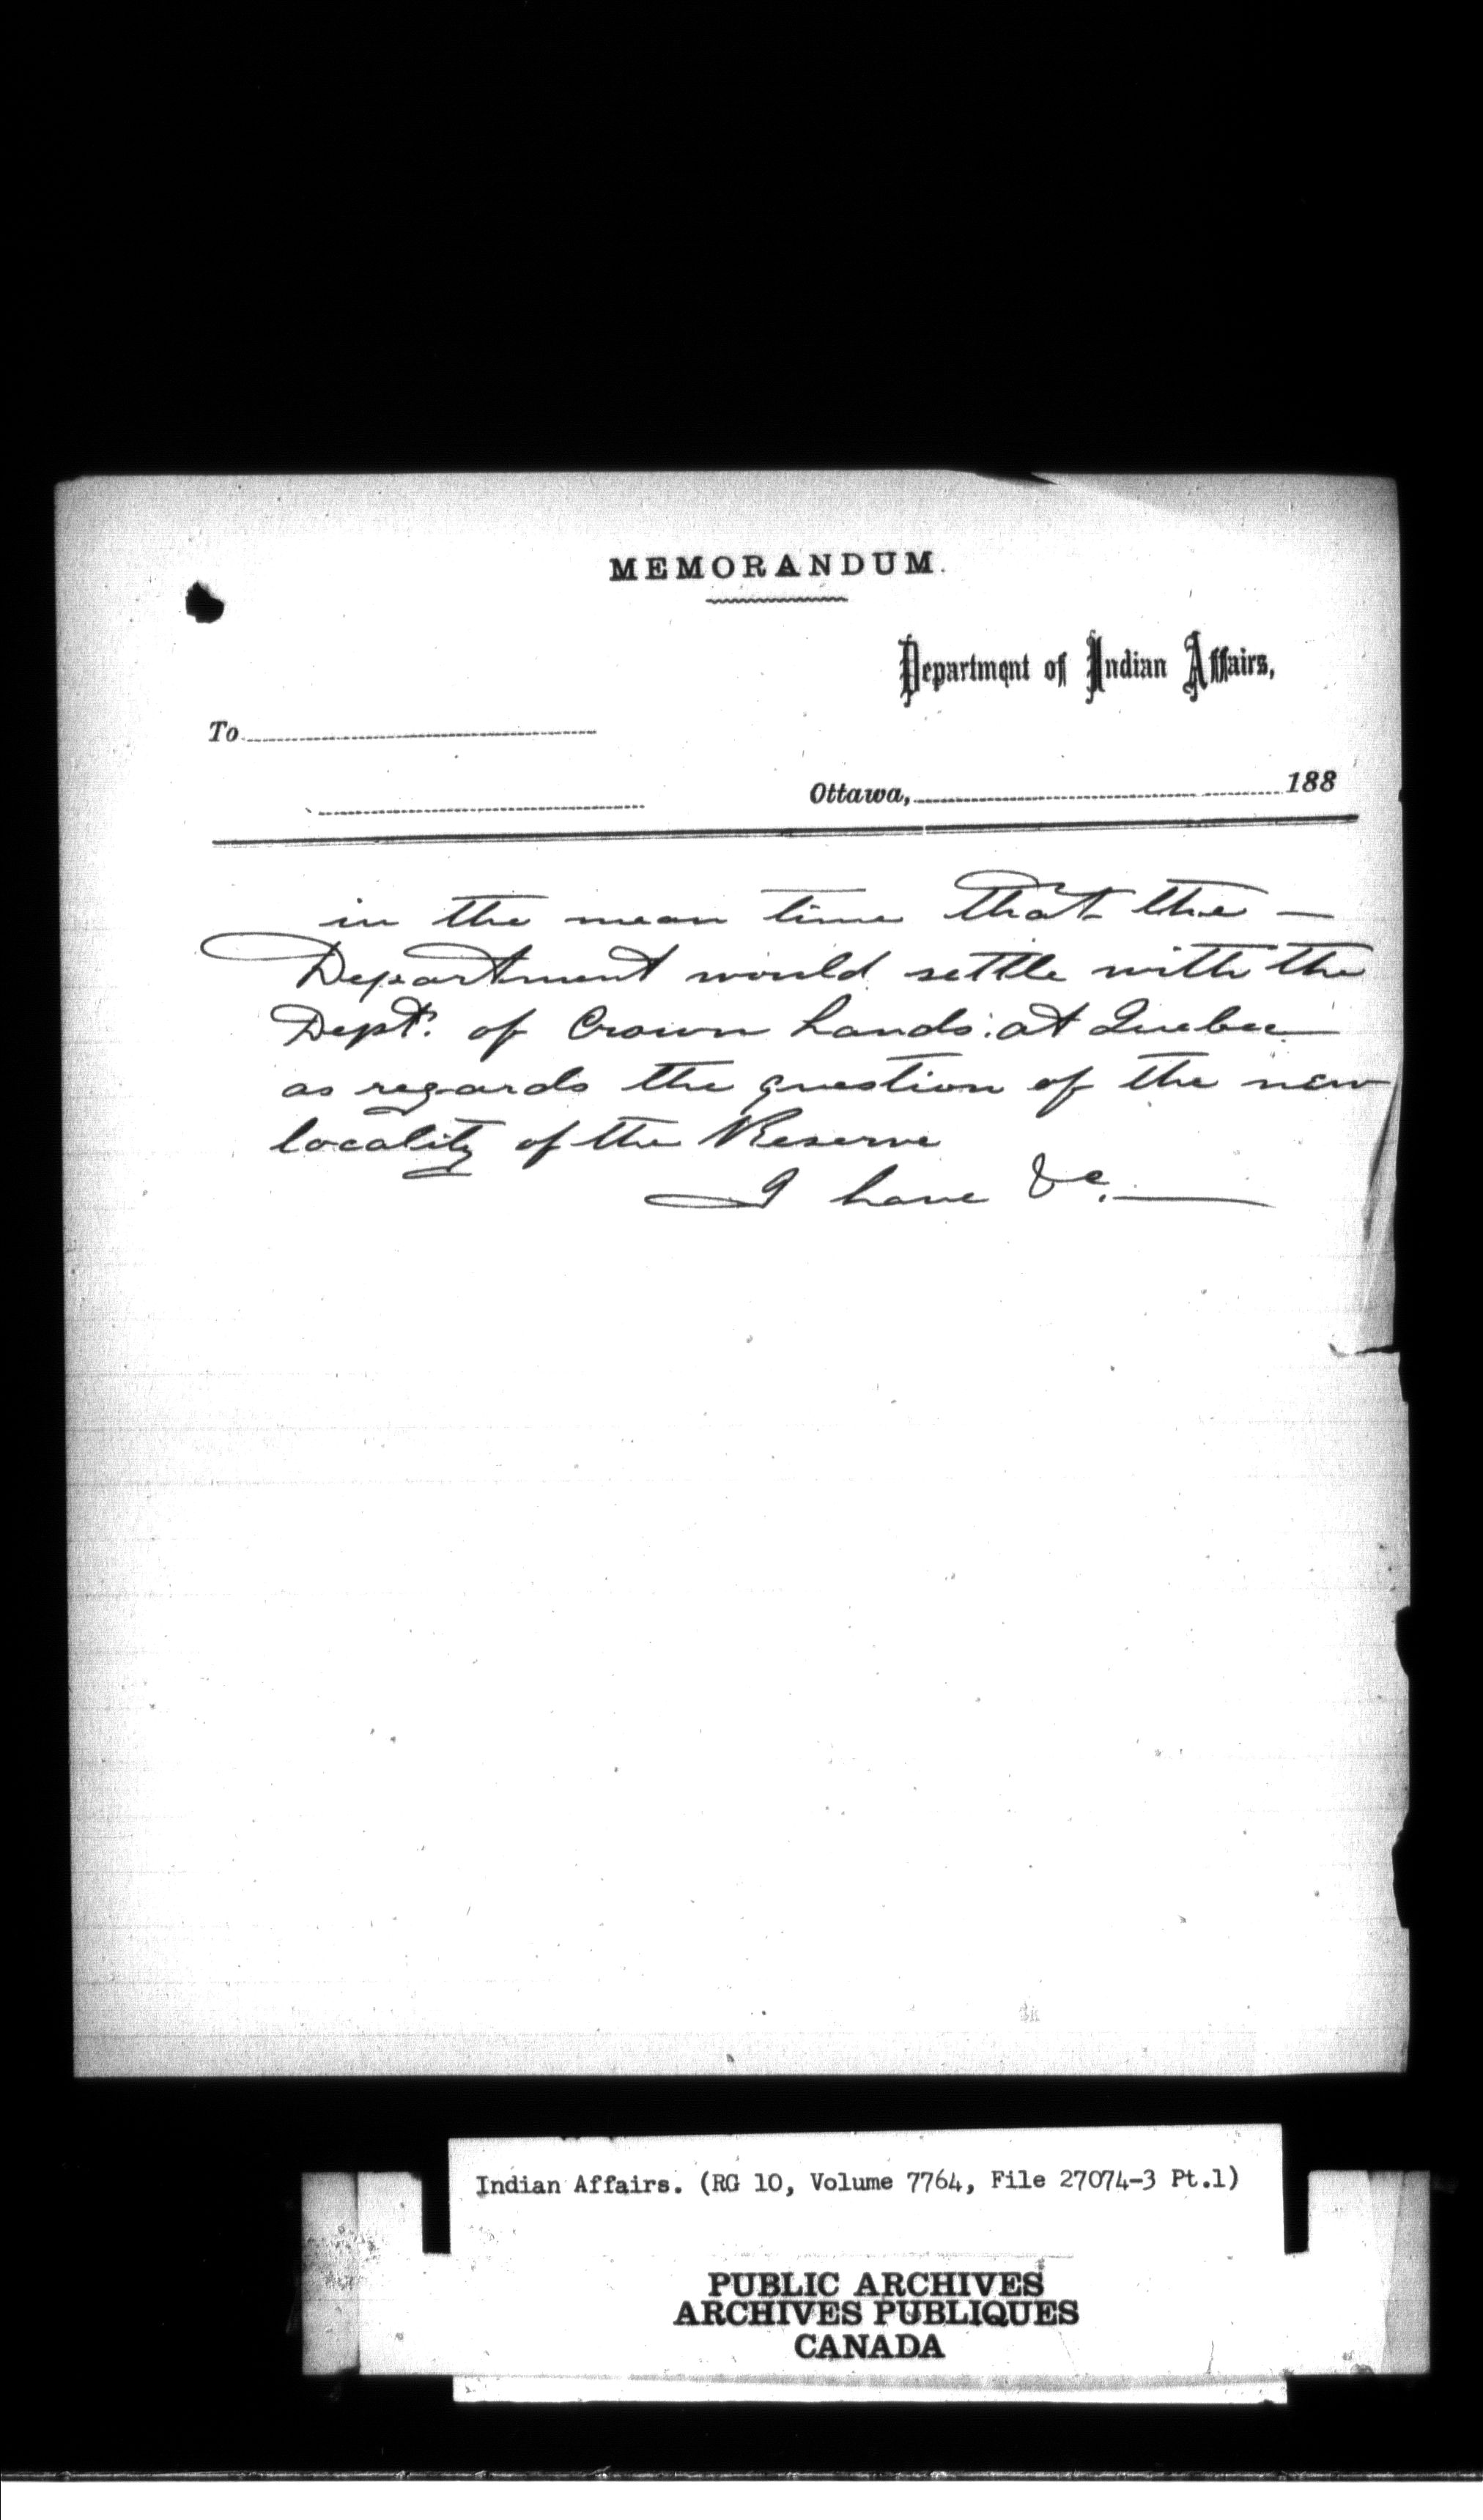 MEMORANDUM.
Department of Indian Affairs,
To
Ottawa, 188
in the mean time that the —
Department would settle with the
Dept. of Crown Lands at Quebec
as regards the question of the new
locality of the Reserve
I have &c.
Indian Affairs. (RG 10, Volume 7764, File 27074-3 Pt.1)
PUBLIC ARCHIVES
ARCHIVES PUBLIQUES
CANADA